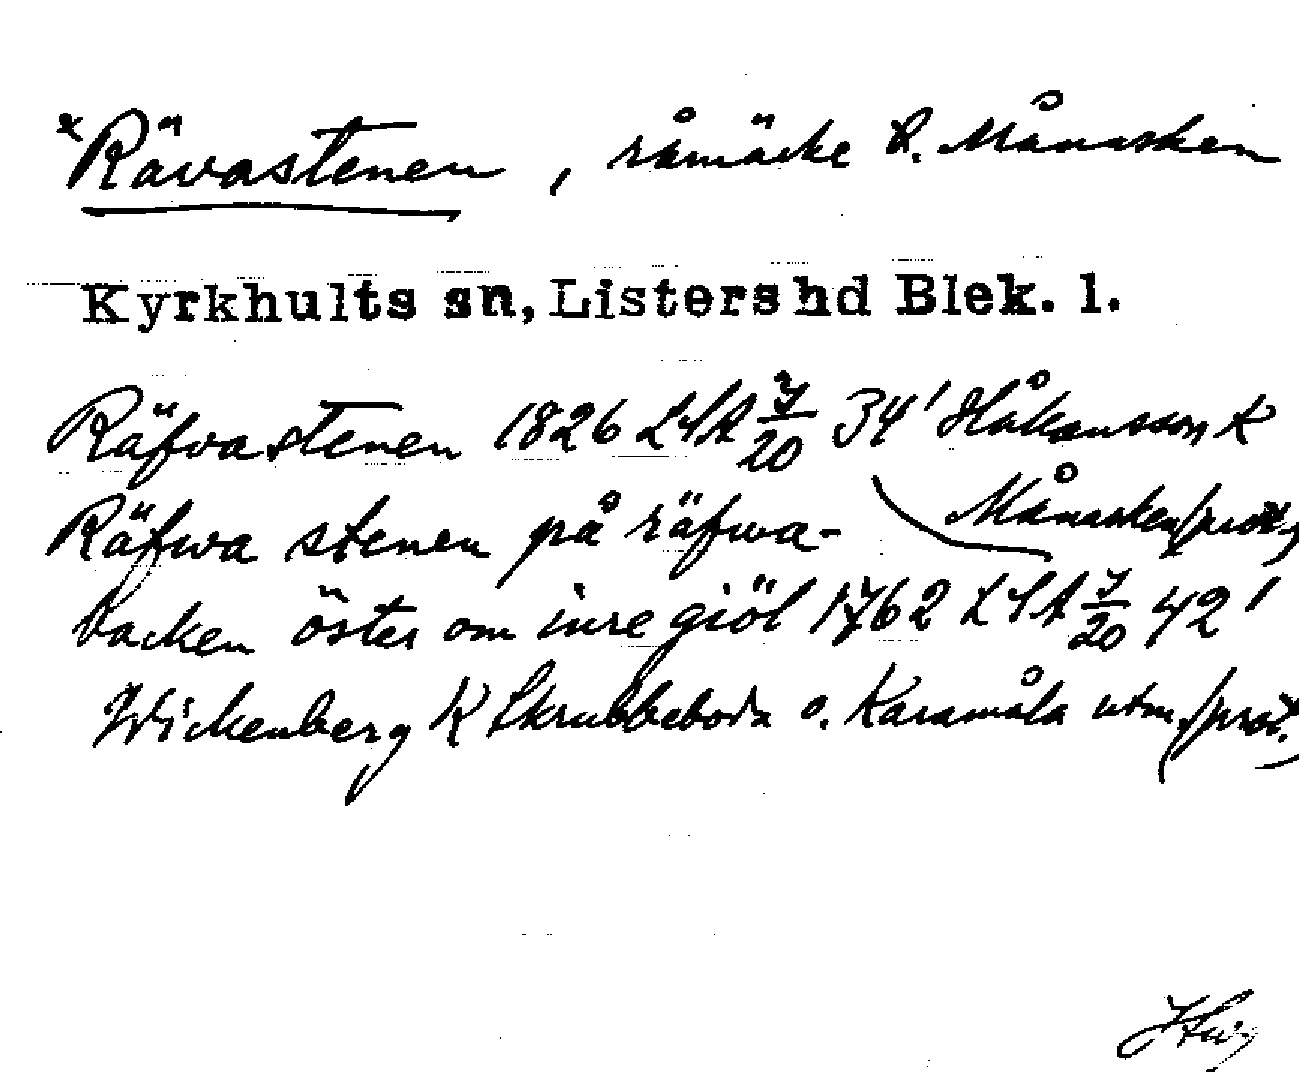 *Rävastenen, råmärke t. Månasken
Kyrkhults sn, Listers hd Blek. l.
Räfvastenen 1826 LSA 7/20 34' Håkansson K
Månasken (prot.)
Räfwa stenen på räfwa-
backen öster om inre giöl 1762 LSA 7/20 42'
Wickenberg K Skrubbeboda o. Karamåla utm. (prot.)